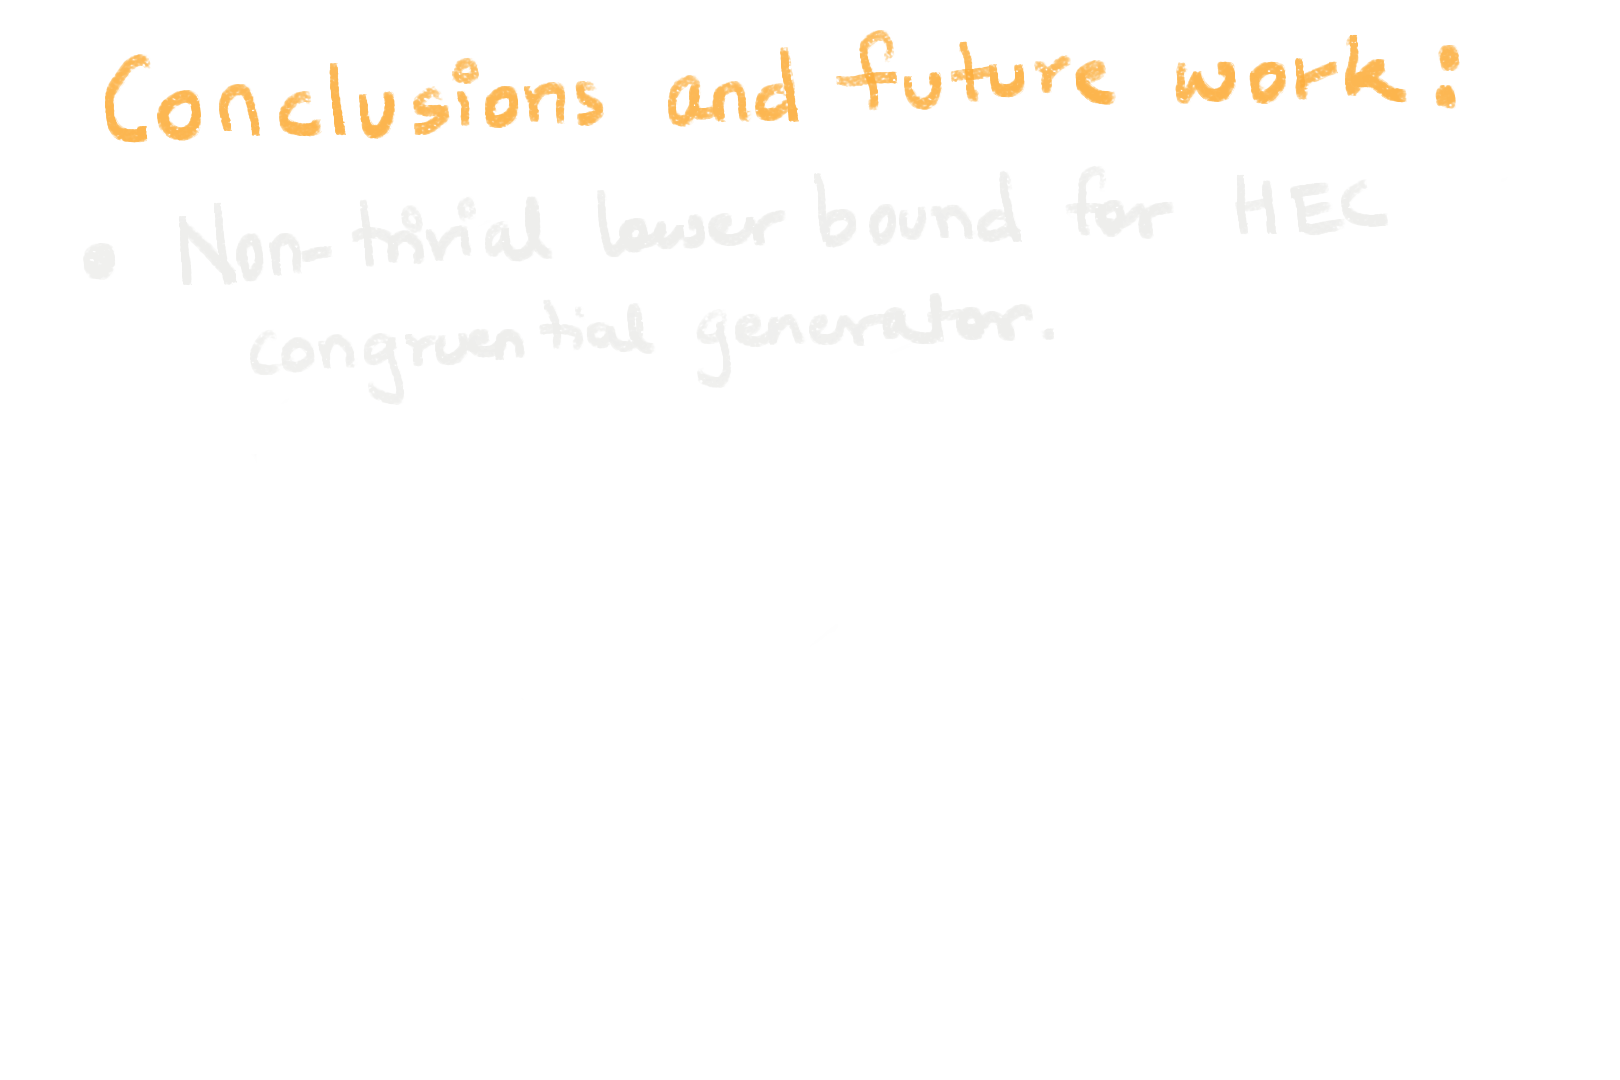 Conclusions and future work:
• Non-trivial lower bound for HEC
congruential generator.